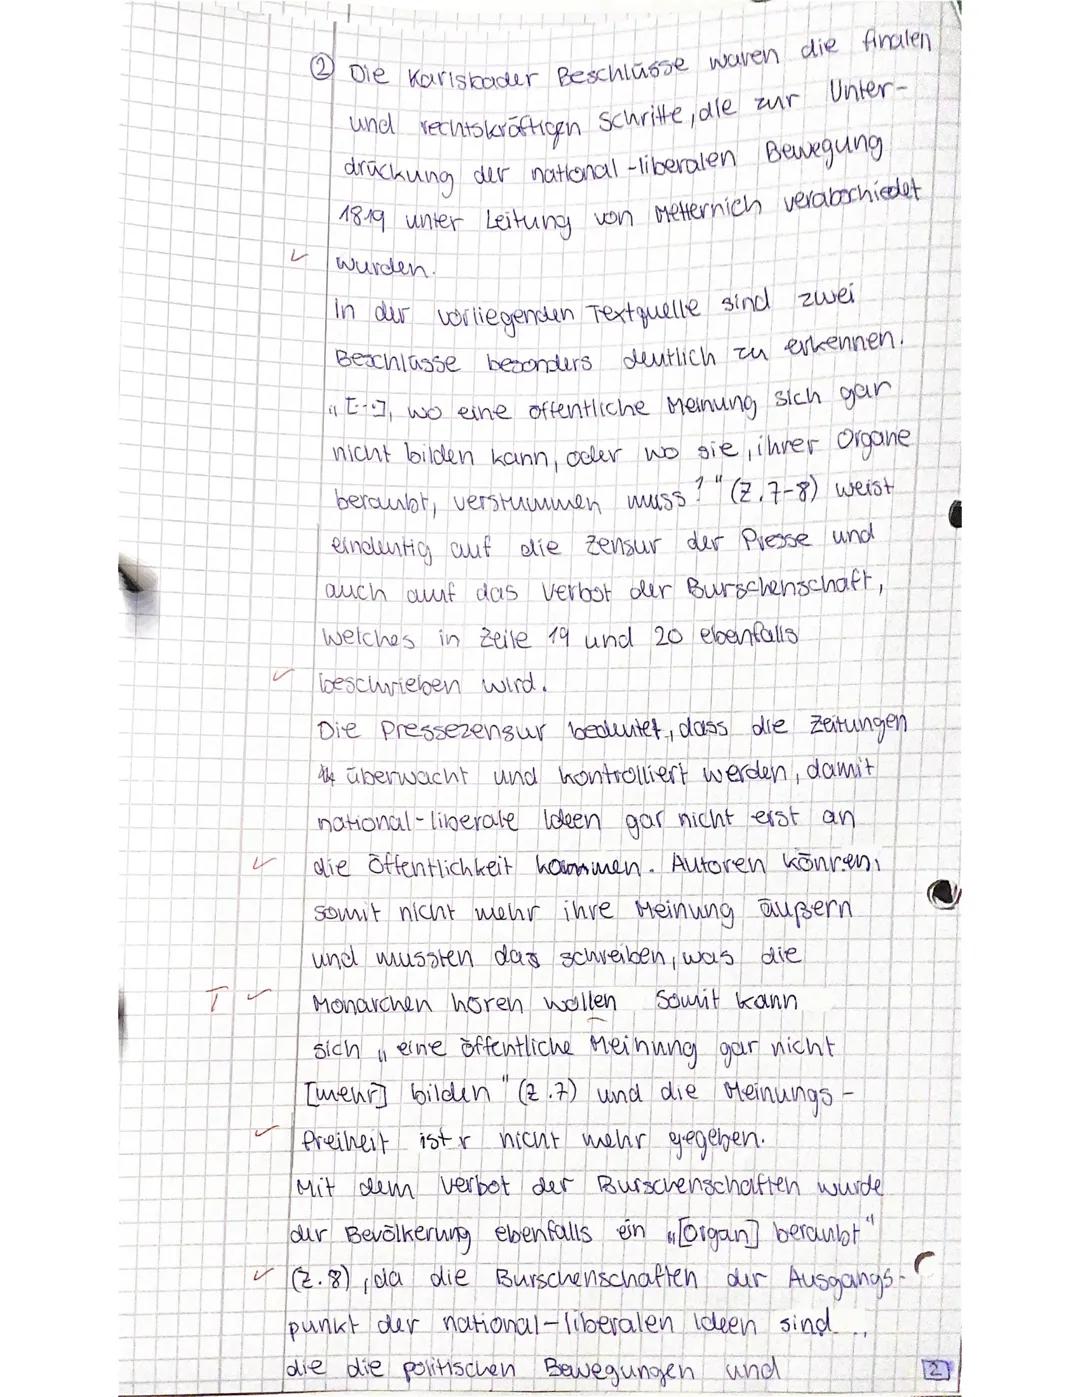 ② Die Karlsbader Beschlüsse waren die finalen
und rechtskräftigen Schritte, die zur Unter-
drückung der national-liberalen Bewegung
1819 unter Leitung von Metternich verabschiedet
✓ wurden.
In der vorliegenden Textquelle sind zwei
Beschlüsse besonders deutlich zu erkennen.
„[...], wo eine öffentliche Meinung sich gar
nicht bilden kann, oder wo sie, ihrer Organe
beraubt, verstummen muss?" (Z.7-8) weist
eindeutig auf die Zensur der Presse und
auch auf das Verbot der Burschenschaft,
welches in Zeile 19 und 20 ebenfalls
✓ beschrieben wird.
Die Pressezensur bedeutet, dass die Zeitungen
überwacht und kontrolliert werden, damit
national-liberale Ideen gar nicht erst an
✓ die Öffentlichkeit kommen. Autoren können
somit nicht mehr ihre Meinung äußern
und mussten das schreiben, was die
T ✓ Monarchen hören wollen Somit kann
sich „eine öffentliche Meinung gar nicht
[mehr] bilden" (Z.7) und die Meinungs-
✓ freiheit ist nicht mehr gegeben.
Mit dem Verbot der Burschenschaften wurde
der Bevölkerung ebenfalls ein „[Organ] beraubt"
✓ (Z.8), da die Burschenschaften der Ausgangs-
punkt der national-liberalen Ideen sind
die die politischen Bewegungen und
2